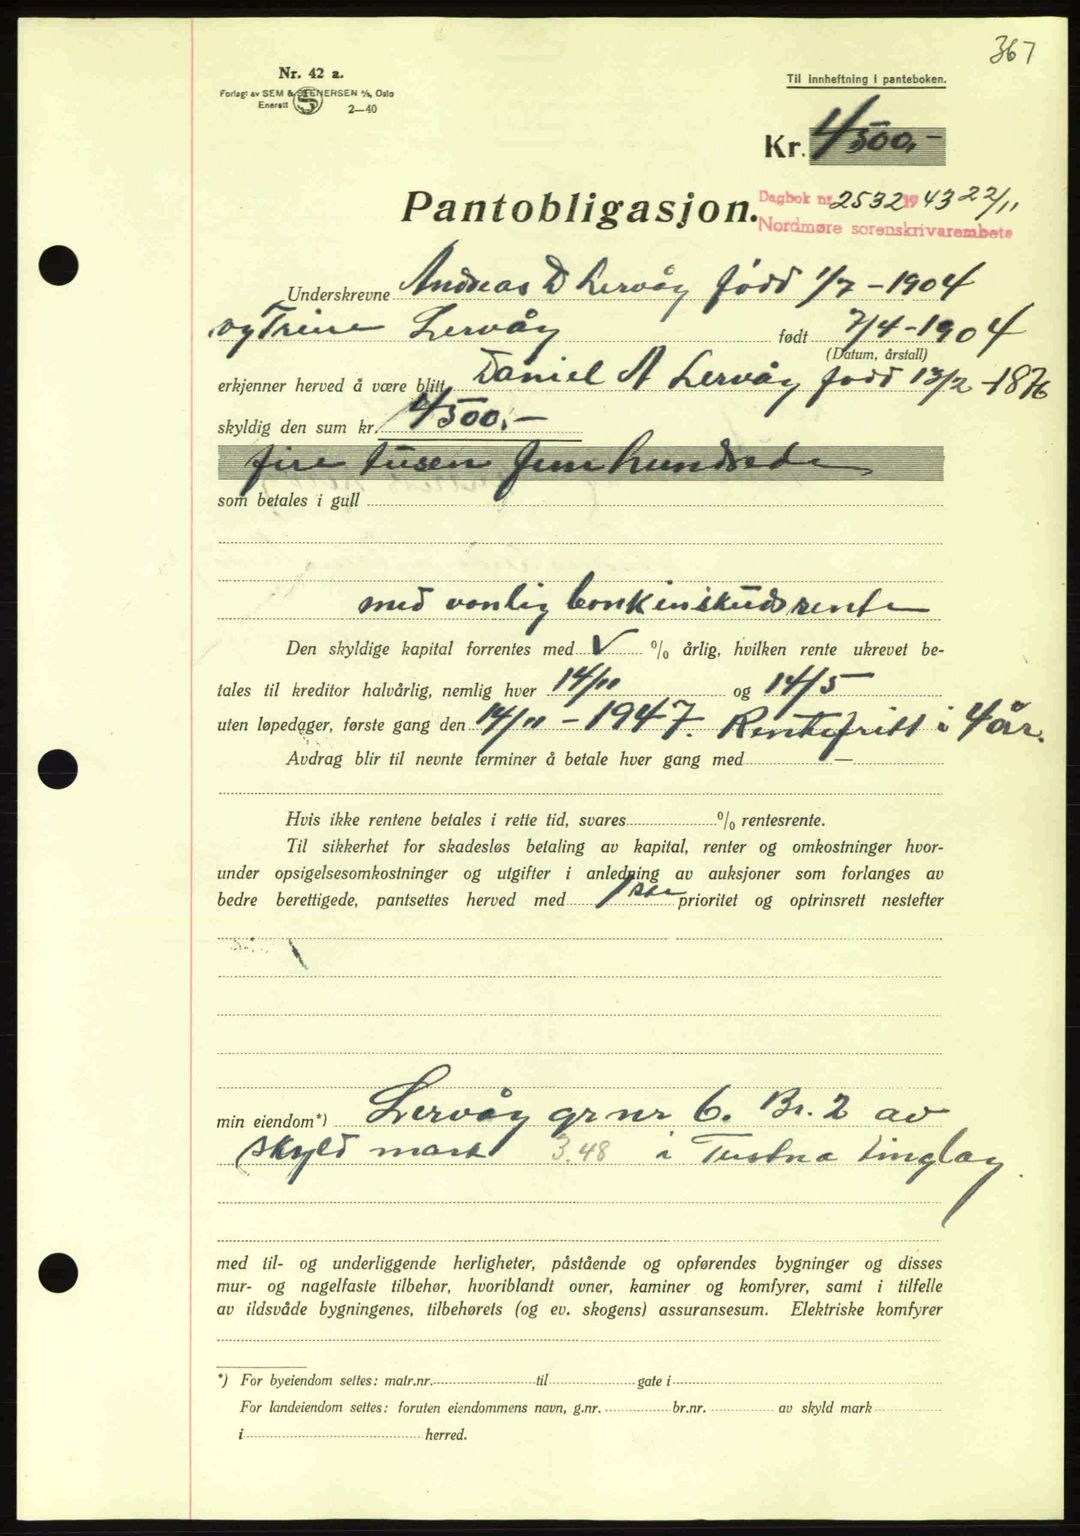 367
Nr. 42 a.
Forlagt av SEM & STENERSEN A/S, Oslo
Enerett
2—40
Til innheftning i panteboken.
Kr. 4500,-
Pantobligasjon.
Dagbok nr. 2532 1943 22/11
Nordmøre sorenskrivarembete
Underskrevne Andreas D Lervåg født 1/7 - 1904
og Trine Lervåg født 7/4 - 1904
(Datum, årstall)
erkjenner herved å være blitt Daniel A Lervåg født 13/2 - 1876
skyldig den sum kr. 4500,-
fire tusen fem hundrede
som betales i gull
med vanlig bankinskudsrente
Den skyldige kapital forrentes med % årlig, hvilken rente ukrevet be-
tales til kreditor halvårlig, nemlig hver 14/11 og 14/5
uten løpedager, første gang den 14/11 - 1947. Rentefritt i 4 år.
Avdrag blir til nevnte terminer å betale hver gang med —
Hvis ikke rentene betales i rette tid, svares % rentesrente.
Til sikkerhet for skadesløs betaling av kapital, renter og omkostninger hvor-
under opsigelsesomkostninger og utgifter i anledning av auksjoner som forlanges av
bedre berettigede, pantsettes herved med 1ste prioritet og optrinsrett nestefter
min eiendom*) Lervåg gr nr 6. Br. 2 av
skyld mark 3.48 i Tustna tinglag
med til- og underliggende herligheter, påstående og opførendes bygninger og disses
mur- og nagelfaste tilbehør, hvoriblandt ovner, kaminer og komfyrer, samt i tilfelle
av ildsvåde bygningenes, tilbehørets (og ev. skogens) assuransesum. Elektriske komfyrer
*) For byeiendom settes: matr.nr. til gate i
For landeiendom settes: foruten eiendommens navn, g.nr. br.nr. av skyld mark
i herred.